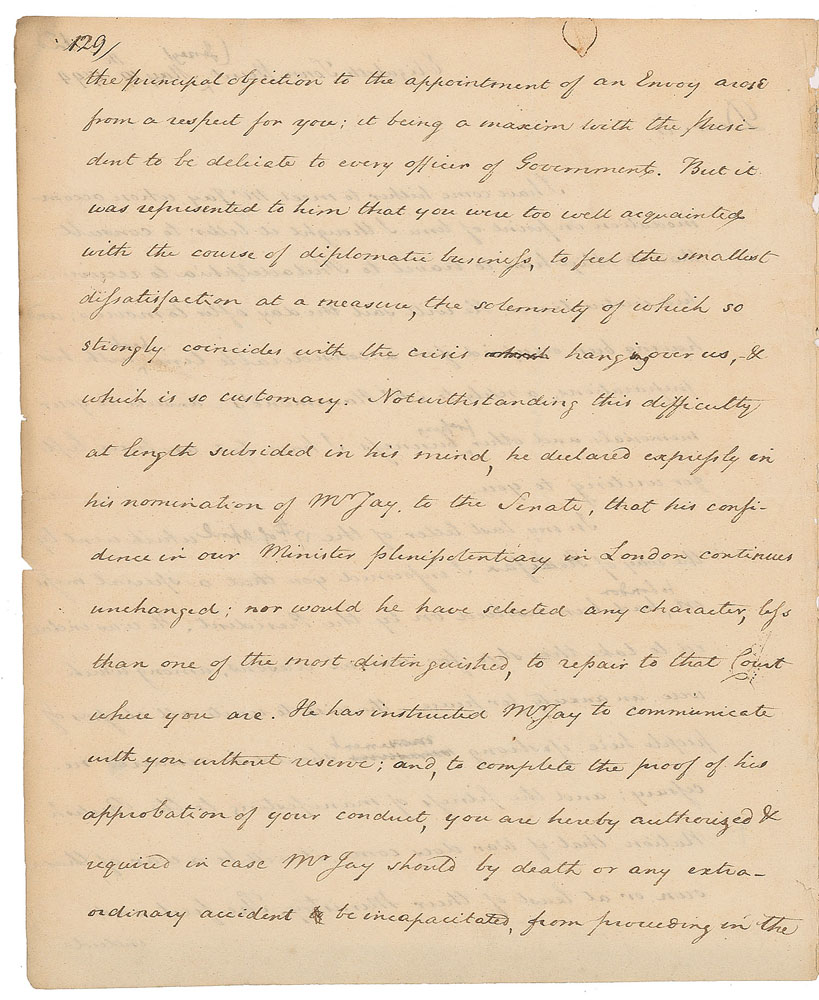 129/
the principal objection to the appointment of an Envoy arose
from a respect for you; it being a maxim with the Presi-
dent to be delicate to every officer of Government. But it
was represented to him that you were too well acquainted
with the course of diplomatic business, to feel the smallest
dissatisfaction at a measure, the solemnity of which so
strongly coincides with the crisis hanging over us, &
which is so customary. Notwithstanding this difficulty
at length subsided in his mind, he declared expressly in
his nomination of Mr Jay, to the Senate, that his confi-
dence in our Minister plenipotentiary in London continues
unchanged; nor would he have selected any character, less
than one of the most distinguished, to repair to that Court
where you are. He has instructed Mr Jay to communicate
with you without reserve; and, to complete the proof of his
approbation of your conduct, you are hereby authorized &
required in case Mr Jay should by death or any extra-
ordinary accident be incapacitated, from proceeding in the